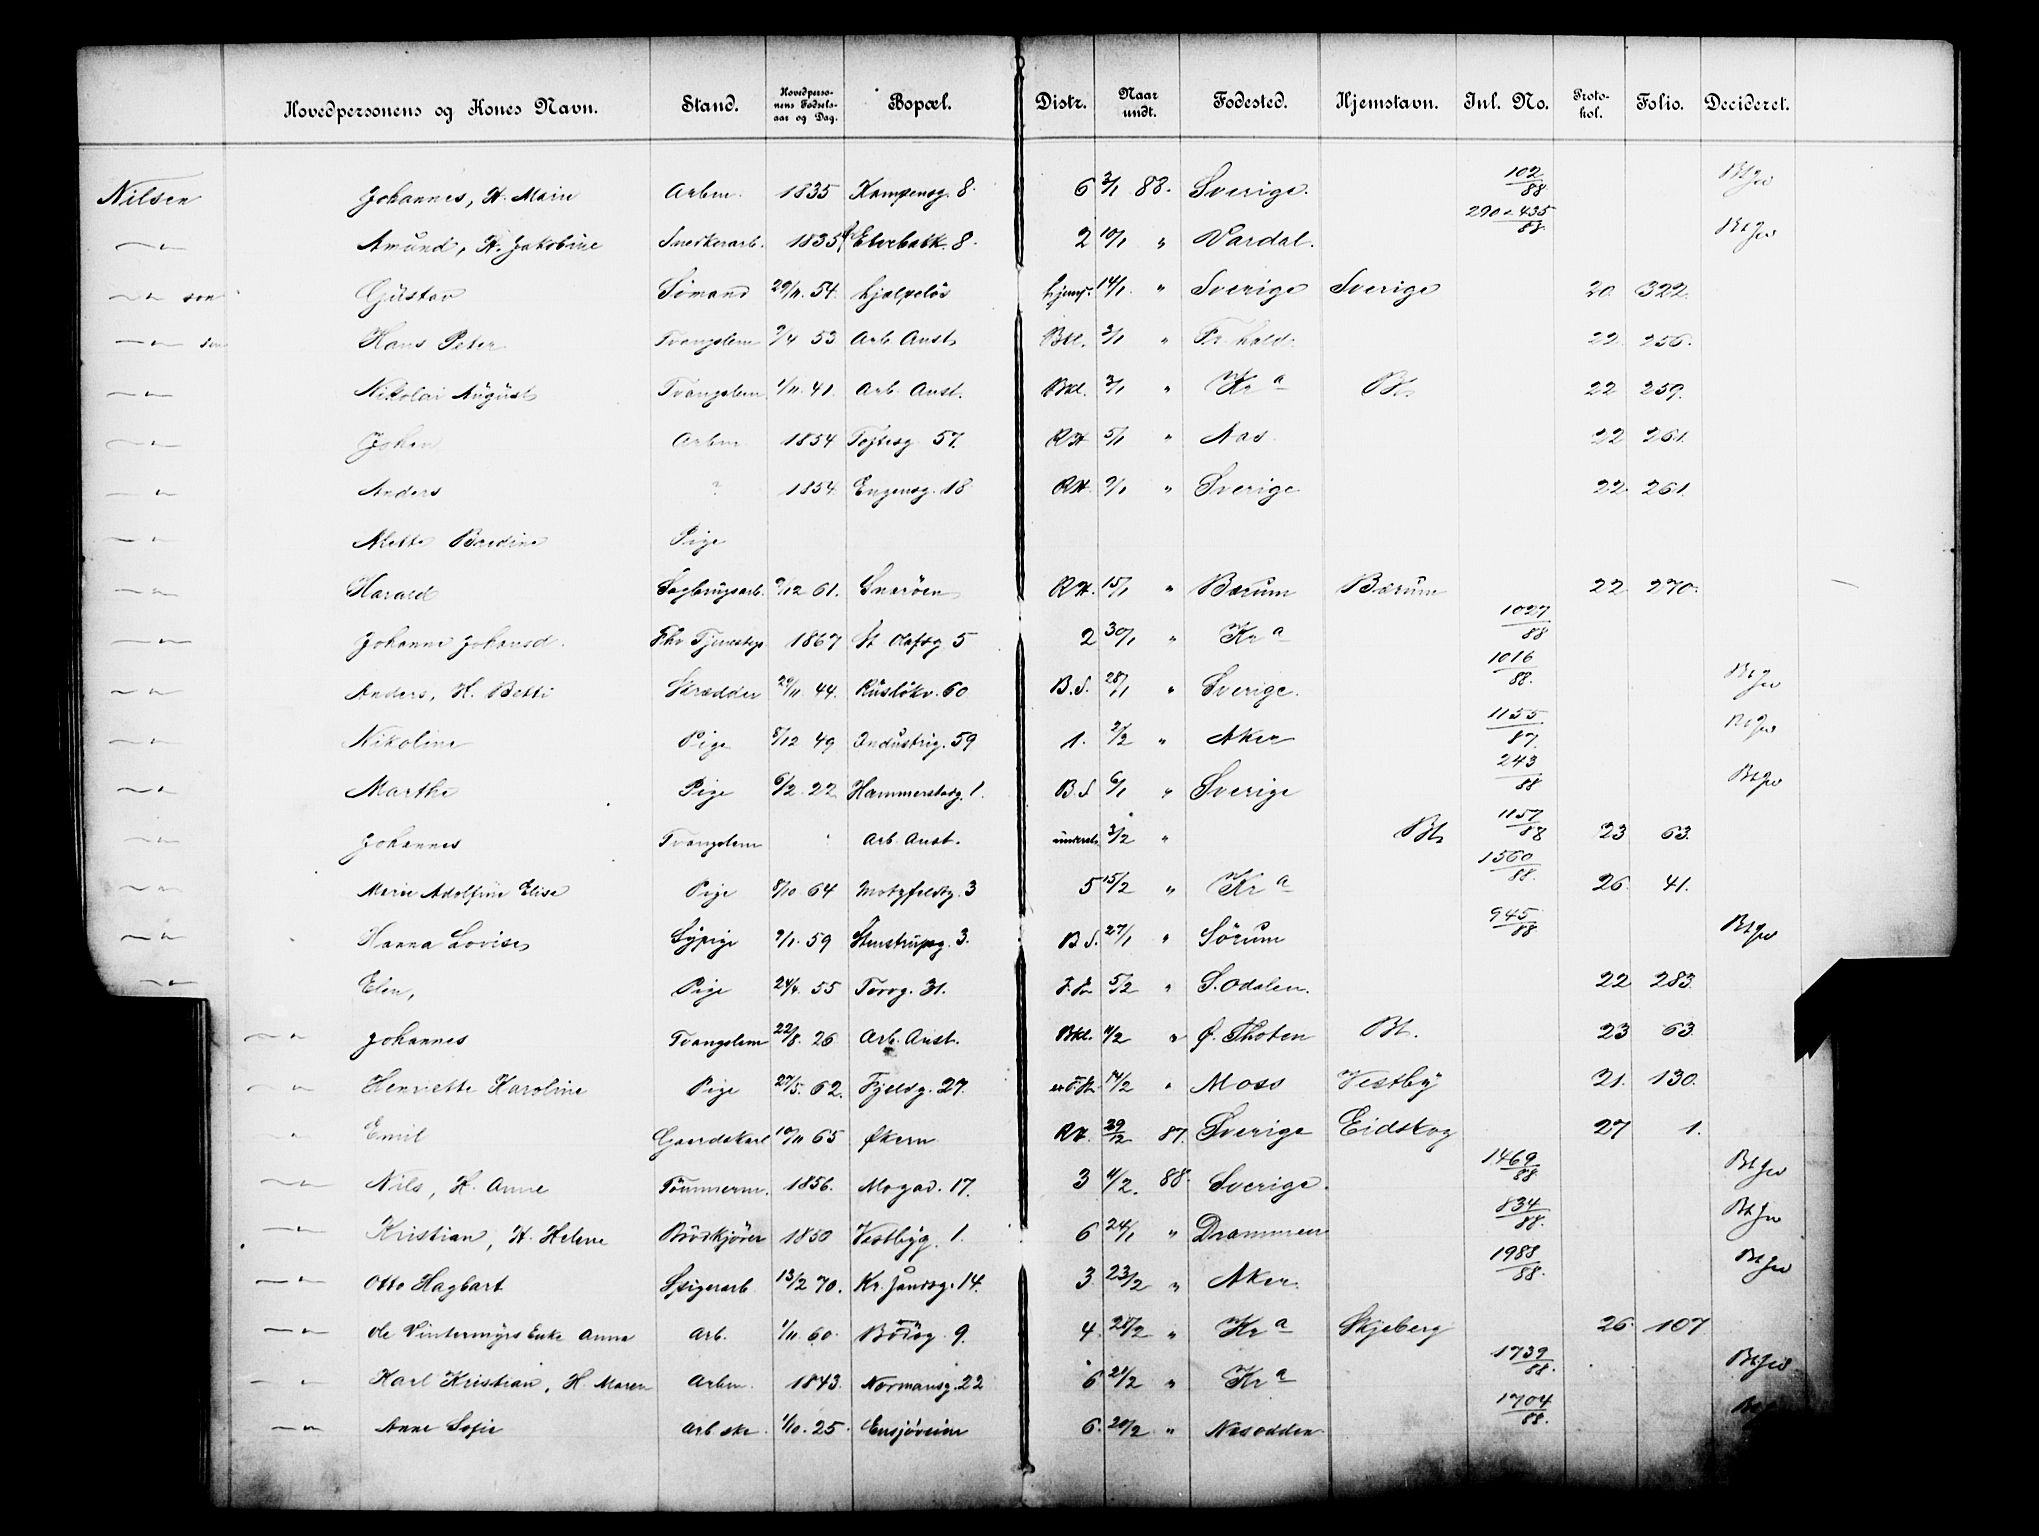 Hovedpersonens og Kones Navn. Stand. Hovedperso-nens Fødsels-aar og Dag. Bopæl. Distr. Naar undt. Fødested. Hjemstavn. Inl. No. Proto-kol. Folio. Decideret.
Nilsen Johannes, H. Marie Arbm. 1835 Kampensg. 8. 6 3/1 88. Sverige. 102/88
—"— Amund, H. Jakobine Snedkerarb. 1835 Elvebakk. 8. 2 10/1 " Vardal. 290 435/88
—"— son Gustav Sømand 29/11. 54. hjælpeløs hjemf. 14/1. " Sverige Sverige 20. 322.
—"— sen Hans Peter Tvangslem 9/4 53 Arb. Anst. Bkl. 3/1 " Fr.hald. 22. 256.
—"— Nikolai August Tvangslem 1/11. 41. Arb. Anst. Bkl. 3/1 " Kra Bt. 22 259.
—"— Johan Arbm 1854 Tøftesg. 57. RH 5/1 " Nas. 22 261.
—"— Anders ? 1854. Engensg. 18 RH. 9/1 " Sverige 22. 261.
—"— Alette Bredine Pige
—"— Harald Sagbrugsarb. 9/12 61. Snarøen RH. 15/1 " Bærum Bærum 22. 270.
—"— Johanne Johansd. Tjenestep. 1867 St Olafsg. 5 2 30/1 " Kra 1027/88
—"— Anders, H. Betti Skrædder 29/11 44. Rusløkv. 60 B.S. 28/1 " Sverige. 1016/88.
—"— Nikoline Pige 8/12 49 Industrig. 59 1. 2/2 " Aker 1155/87.
—"— Marthe Pige 6/2. 22 Hammersborg. 1. B.S 6/1 " Sverige 243/88
—"— Johannes Tvangslem Arb. Anst. 3/2 " Bt. 1157/88 23 63.
—"— Marie Adolfine Elise Pige 8/10 64 Motzfeldtg. 3 5 15/2 " Kra 1560/88. 26. 41.
—"— Hanna Lovise Sypige 9/1. 59 Stenstrupsg. 3. B.S. 27/1 " Sørum 945/88
—"— Elen, Pige 24/4. 55 Torvg. 31. 5/2 " S. Odalen. 22 283.
—"— Johannes Tvangslem 22/8. 26 Arb. Anst. Bkl. 11/2 " Ø. Thoten Bt. 23 63.
—"— Henriette Karoline Pige 27/5. 62. Fjeldg. 27. 14/2 " Moss Vestby 21. 130.
" Emil Gaardskarl 10/11 65 Økern RH. 29/12 87. Sverige Eidskog 27 1.
—"— Nils, H. Anne Tømmerm. 1856. Mogad. 17. 3 11/2. 88. Sverige. 1469/88
—"— Kristian, H. Helene Brødkjører 1850 Vestbyg. 1. 6 24/1 " Drammen 834/88.
—"— Otto Hagbart Spigerarb. 13/2 70. Kr. Jandsg. 14. 3 23/2 " Aker. 1988/88.
—"— Ole Vintermyrs Enke Anna Arb. 1/11. 60. Bødøg. 9. 4. 28/2 " Kra Skjeberg 26. 107
—"— Karl Kristian, H. Maren Arbm. 1843. Normansg. 22 6 21/2 " Kra 1739/88.
—"— Anne Sofie Arb ske 1/10. 25. Ensjøveien 6. 20/2 " Næsodden 1704/88.